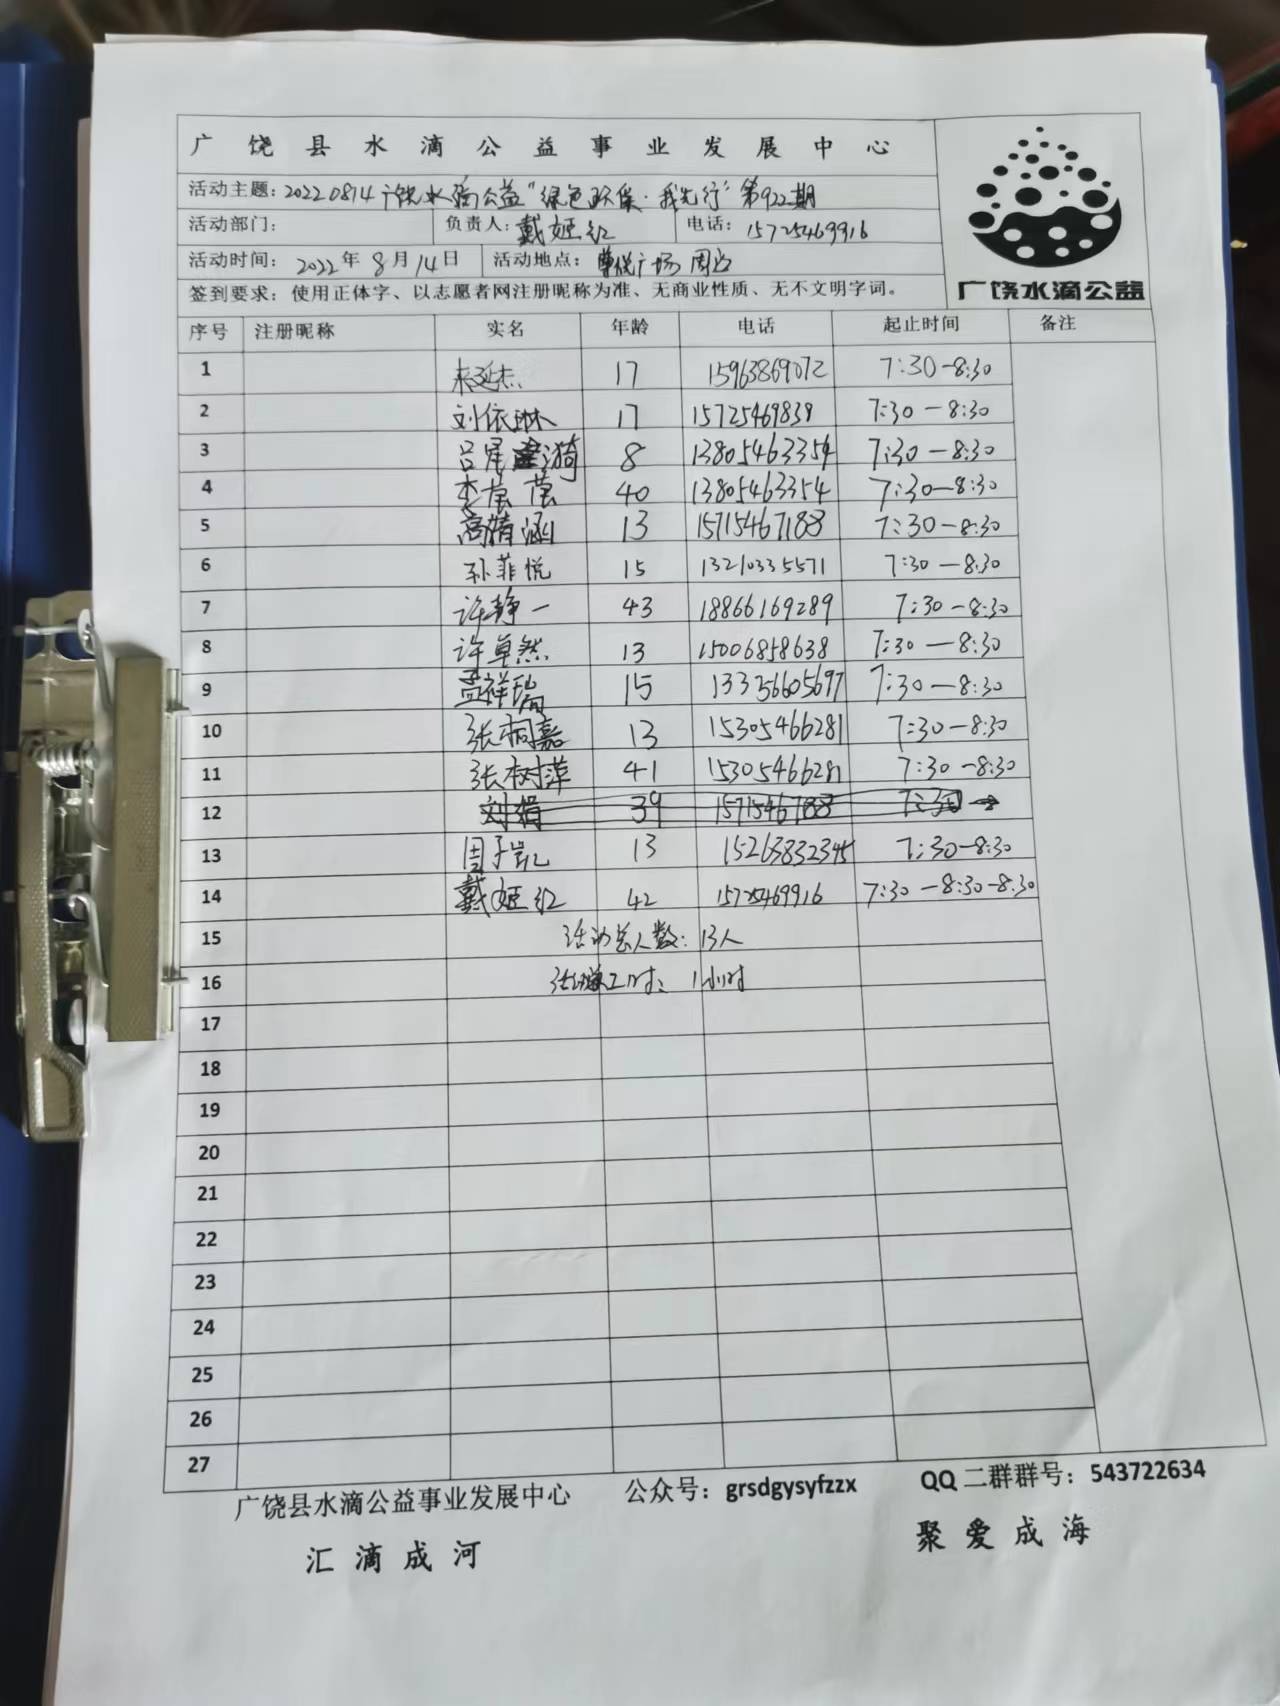 广饶县水滴公益事业发展中心
活动主题: 20220814广饶水滴公益"绿色环保·我先行"第922期
活动部门: 负责人: 戴姬红 电话: 15725469916
活动时间: 2022年8月14日 活动地点: 悦广场周边
签到要求: 使用正体字、以志愿者网注册昵称为准、无商业性质、无不文明字词。
广饶水滴公益
序号 注册昵称 实名 年龄 电话 起止时间 备注
1 来延杰 17 15963869072 7:30-8:30
2 刘依琳 17 15725469839 7:30-8:30
3 吕 漪 8 13805463354 7:30-8:30
4 李 40 13805463354 7:30-8:30
5 高精涵 13 15715467188 7:30-8:30
6 孙菲悦 15 13210335571 7:30-8:30
7 许静一 43 18866169289 7:30-8:30
8 许卓然 13 15006858638 7:30-8:30
9 孟祥瑞 15 13356605697 7:30-8:30
10 张桐嘉 13 15305466281 7:30-8:30
11 张树萍 41 15305466281 7:30-8:30
12 刘娟 39 15715467188 7:30
13 周子凯 13 15263832345 7:30-8:30
14 戴姬红 42 15725469916 7:30-8:30-8:30
15 活动总人数: 13人
16 活动 工时: 1小时
17
18
19
20
21
22
23
24
25
26
27
广饶县水滴公益事业发展中心 公众号: grsdgysyfzzx QQ二群群号: 543722634
汇滴成河 聚爱成海